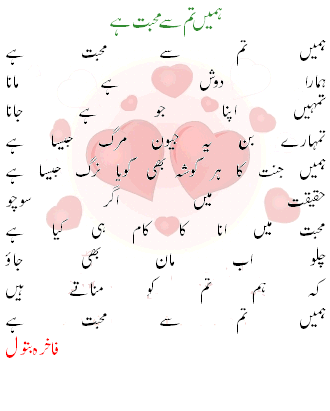 ہمیں تم سے محبت ہے
ہمیں تم سے محبت ہے
ہمارا دوش ہے مانا
تمہیں اپنا جو ہے جانا
تمہارے بن یہ جیون مرگ جیسا ہے
ہمیں جنت کا ہر گوشہ بھی گویا نرگ جیسا ہے
حقیقت میں اگر سوچو
محبت میں انا کا کام ہی کیا ہے
چلو اب مان بھی جاؤ
کہ ہم تم کو مناتے ہیں
ہمیں تم سے محبت ہے
فاخرہ بتول